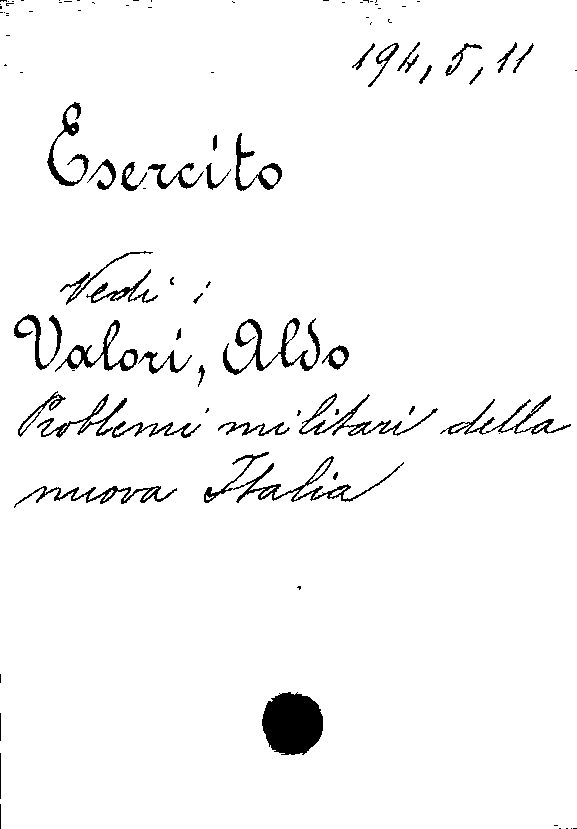 194,5,11
Esercito
Vedi:
Valori, Aldo
Problemi militari della
nuova Italia